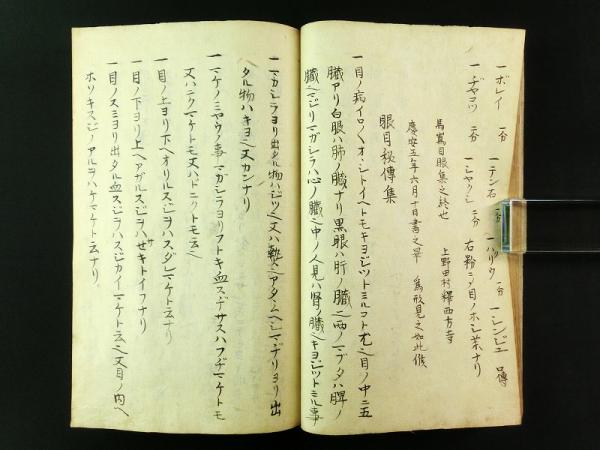 一 ボレイ 一分 一 テン石 一分 一 ハリウ 一分 一 シンジエ 口傳
一 チヤヨツ 一分 一 シヤクシ 二分 右粉ニシ目ノホシ薬ナリ
馬嶌目眼集之終也 上野田村釋西方寺
慶安五年六月十日書之畢 爲形見之如此候
眼目秘傳集
一 目ノ病イロ〳〵オヽシトイヘトモキヨジツトミルコト尤之目ノ中ニ五
臓アリ白眼ハ肺ノ臓ナリ黒眼ハ肝ノ臓之両ノマブタハ脾ノ
臓之マジリマガシラハ心ノ臓之中ノ人見ハ腎ノ臓之キヨジツトミル事
一 マカシラヨリ出タル物ハジツ之又ハ熱之アタヽヘシマヂリヨリ出
タル物ハキヨ之又カンナリ
一 マケノミヤウノ事マガシラヨリフトキ血スヂサスハフヂマケトモ
又ハニクマケトモ又ハドニクトモ云之
一 目ノ上ヨリ下ヘオリルスジヲハスダレマケト云ナリ
一 目ノ下ヨリ上ヘアガルスジヲハサセキトイフナリ
一 目ノスミヨリ出タル血スジヲハスジカイマケト云之又目ノ内ヘ
ホソキスジノアルヲハケマケト云ナリ